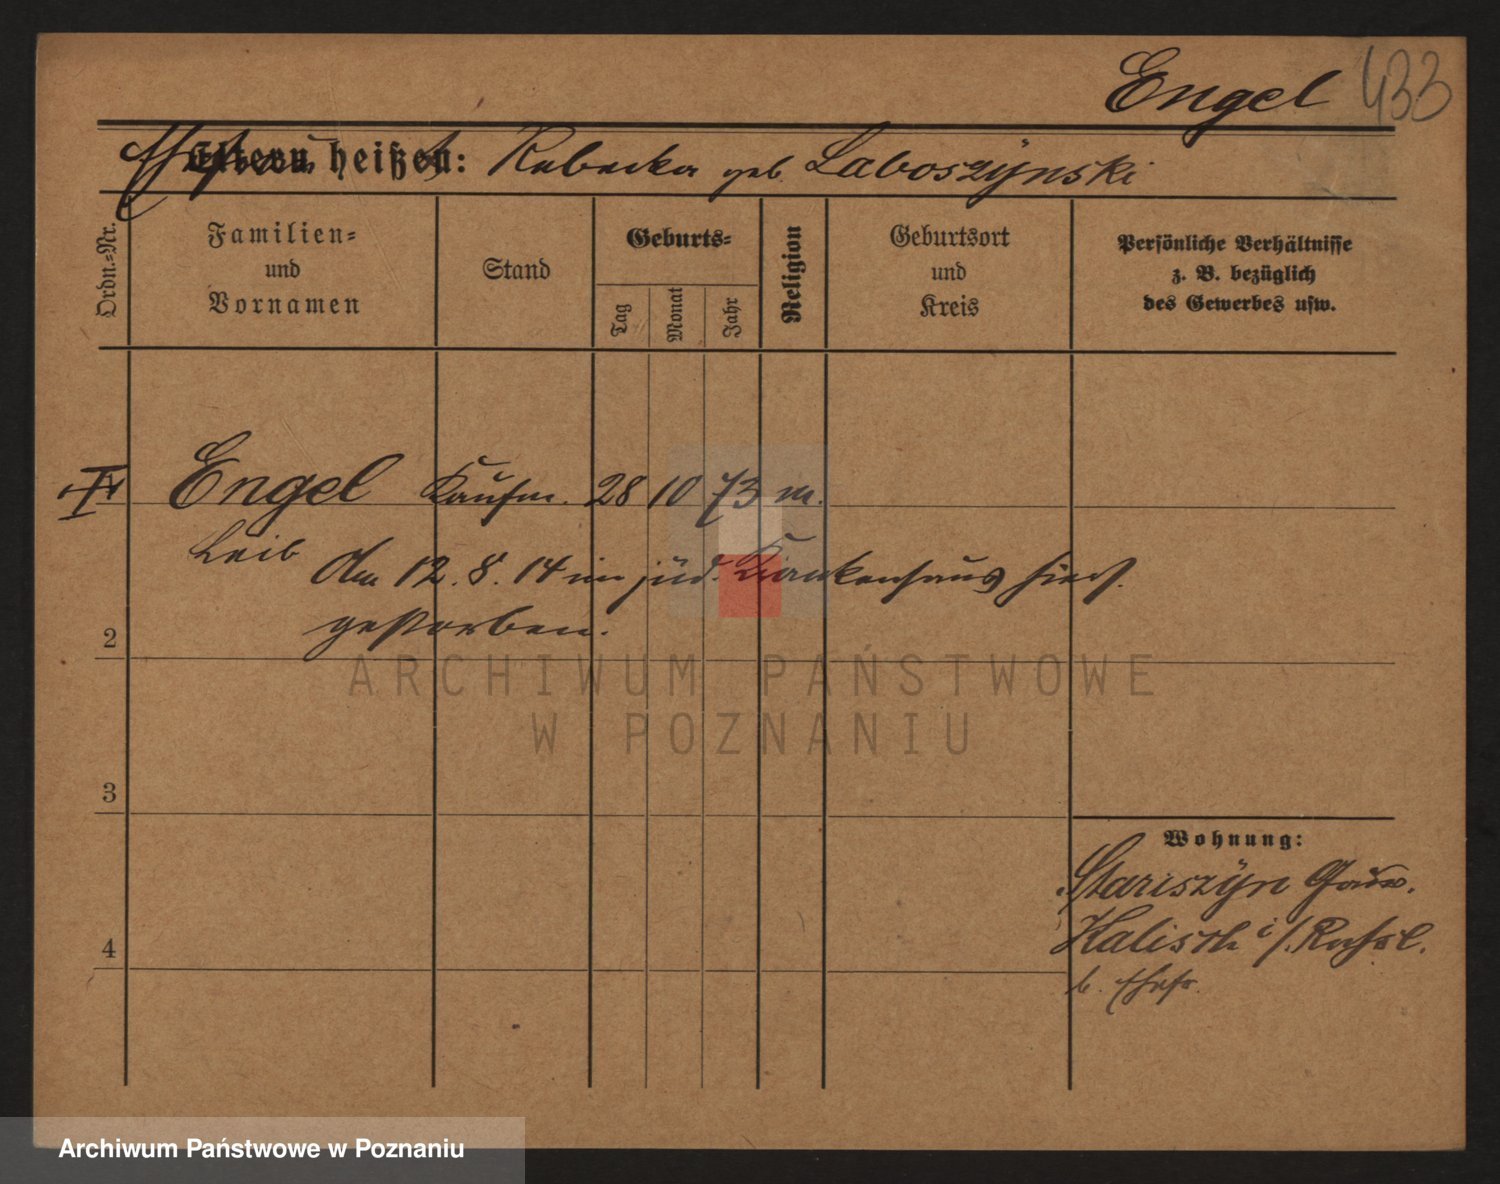 Engel 433
Eltern heißen: Rebecka geb. Laboszÿnski
Ordn.-Nr.
Familien-
und
Vornamen
Stand
Geburts-
Tag
Monat
Jahr
Religion
Geburtsort
und
Kreis
Persönliche Verhältnisse
z. B. bezüglich
des Gewerbes usw.
Engel Kaufm. 28 10 73 m.
Leib
Am 12. 8. 14 im jüd. Krankenhaus hiers.
gestorben.
2
3
4
Wohnung:
Stariszÿn Gouv.
Kalisch i/. Rußl.
b.
ARCHIWUM PAŃSTWOWE
W POZNANIU
Archiwum Państwowe w Poznaniu